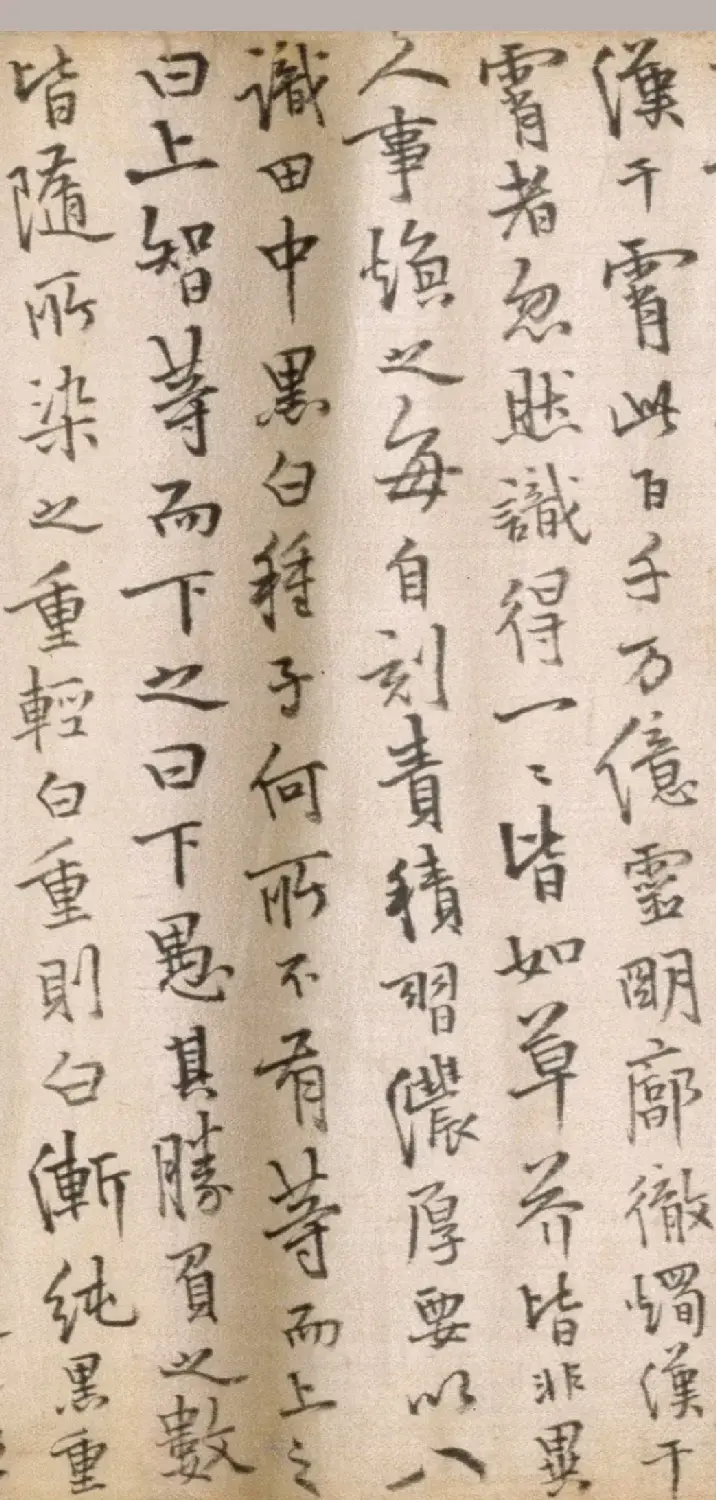 漢干霄此百千万億靈明廓徹燭漢干
霄者忽然識得一〻皆如草芥皆非異
人事煩之每自刻責積習濃厚要以八
識田中黒白種子何所不有等而上之
曰上智等而下之曰下愚其勝負之數
皆隨所染之重輕白重則白漸純黒重